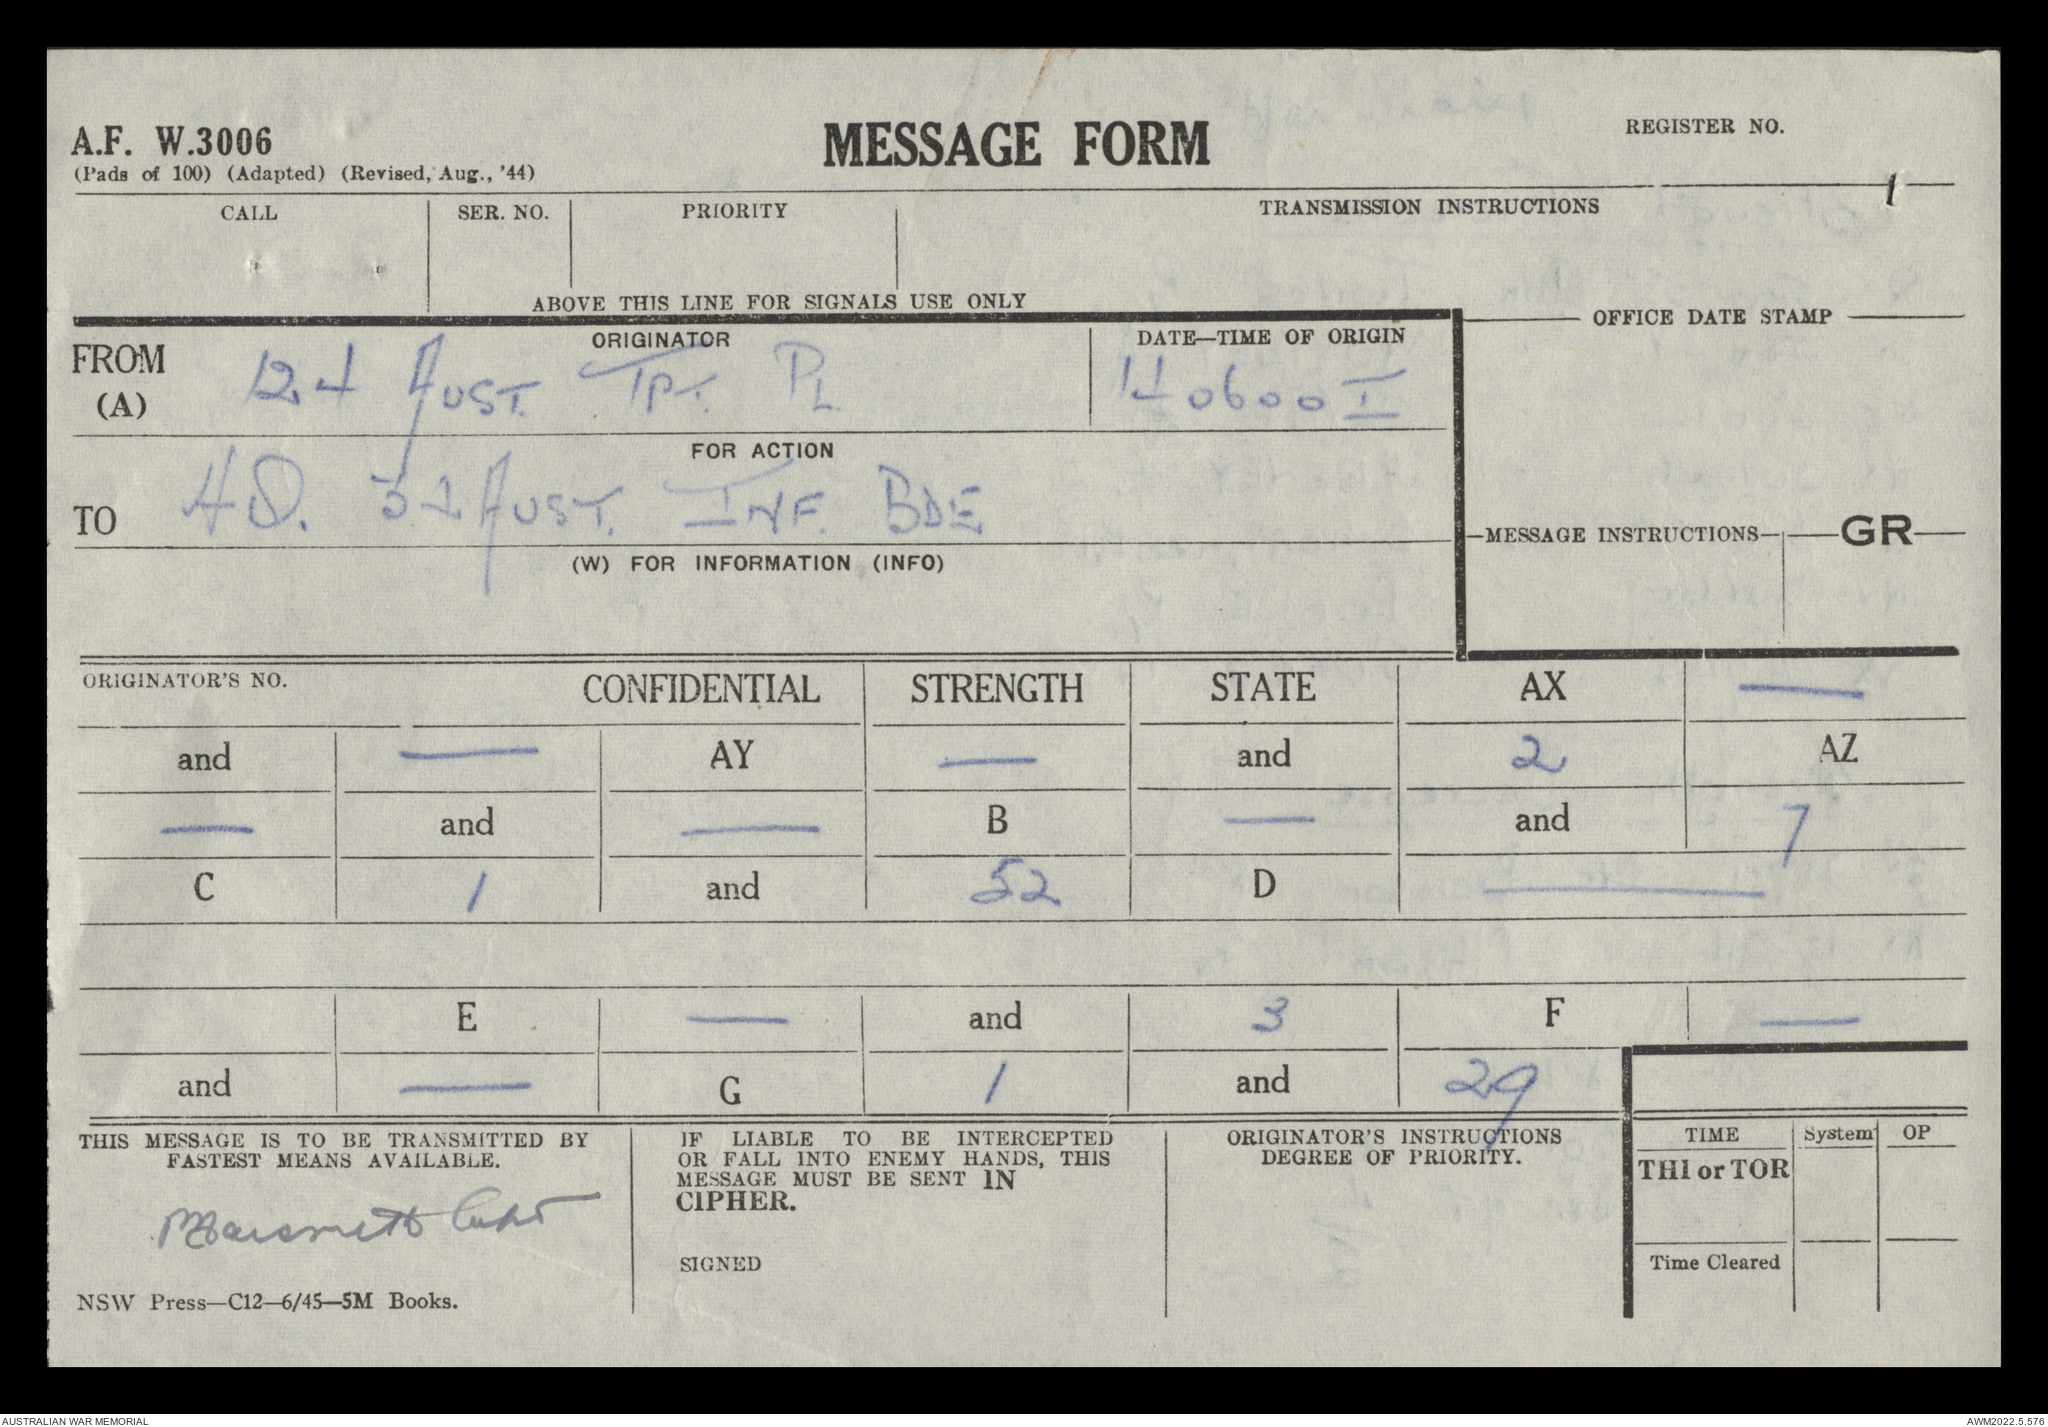 A.F. W.3006
MESSAGE FORM
REGISTER NO.
(Pads of 100) (Adapted) (Revised, Aug., '44)
CALL SER. NO. PRIORITY TRANSMISSION INSTRUCTIONS
ABOVE THIS LINE FOR SIGNALS USE ONLY
OFFICE DATE STAMP
ORIGINATOR DATE—TIME OF ORIGIN
FROM
(A)
124 AUST. TPT. PL 140600 I
FOR ACTION
TO HQ. 31 AUST. INF. BDE
MESSAGE INSTRUCTIONS GR
(W) FOR INFORMATION (INFO)
ORIGINATOR'S NO. CONFIDENTIAL STRENGTH STATE AX —
and — AY — and 2 AZ
— and — B — and 7
C 1 and 52 D —
E — and 3 F —
and — G 1 and 29
THIS MESSAGE IS TO BE TRANSMITTED BY
FASTEST MEANS AVAILABLE.
IF LIABLE TO BE INTERCEPTED
OR FALL INTO ENEMY HANDS, THIS
MESSAGE MUST BE SENT IN
CIPHER.
SIGNED
ORIGINATOR'S INSTRUCTIONS
DEGREE OF PRIORITY.
TIME System OP
THI or TOR
Time Cleared
Capt
NSW Press—C12—6/45—5M Books.
AUSTRALIAN WAR MEMORIAL
AWM2022.5.576